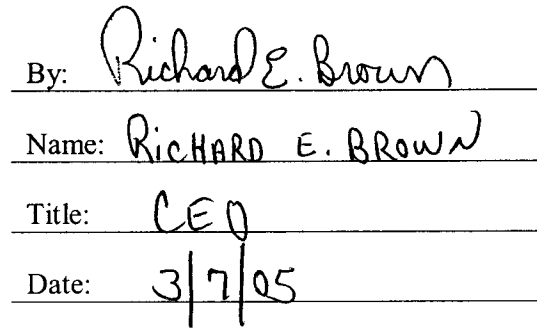 By: Richard E. Brown
Name: RICHARD E. BROWN
Title: CEO
Date: 3/7/05